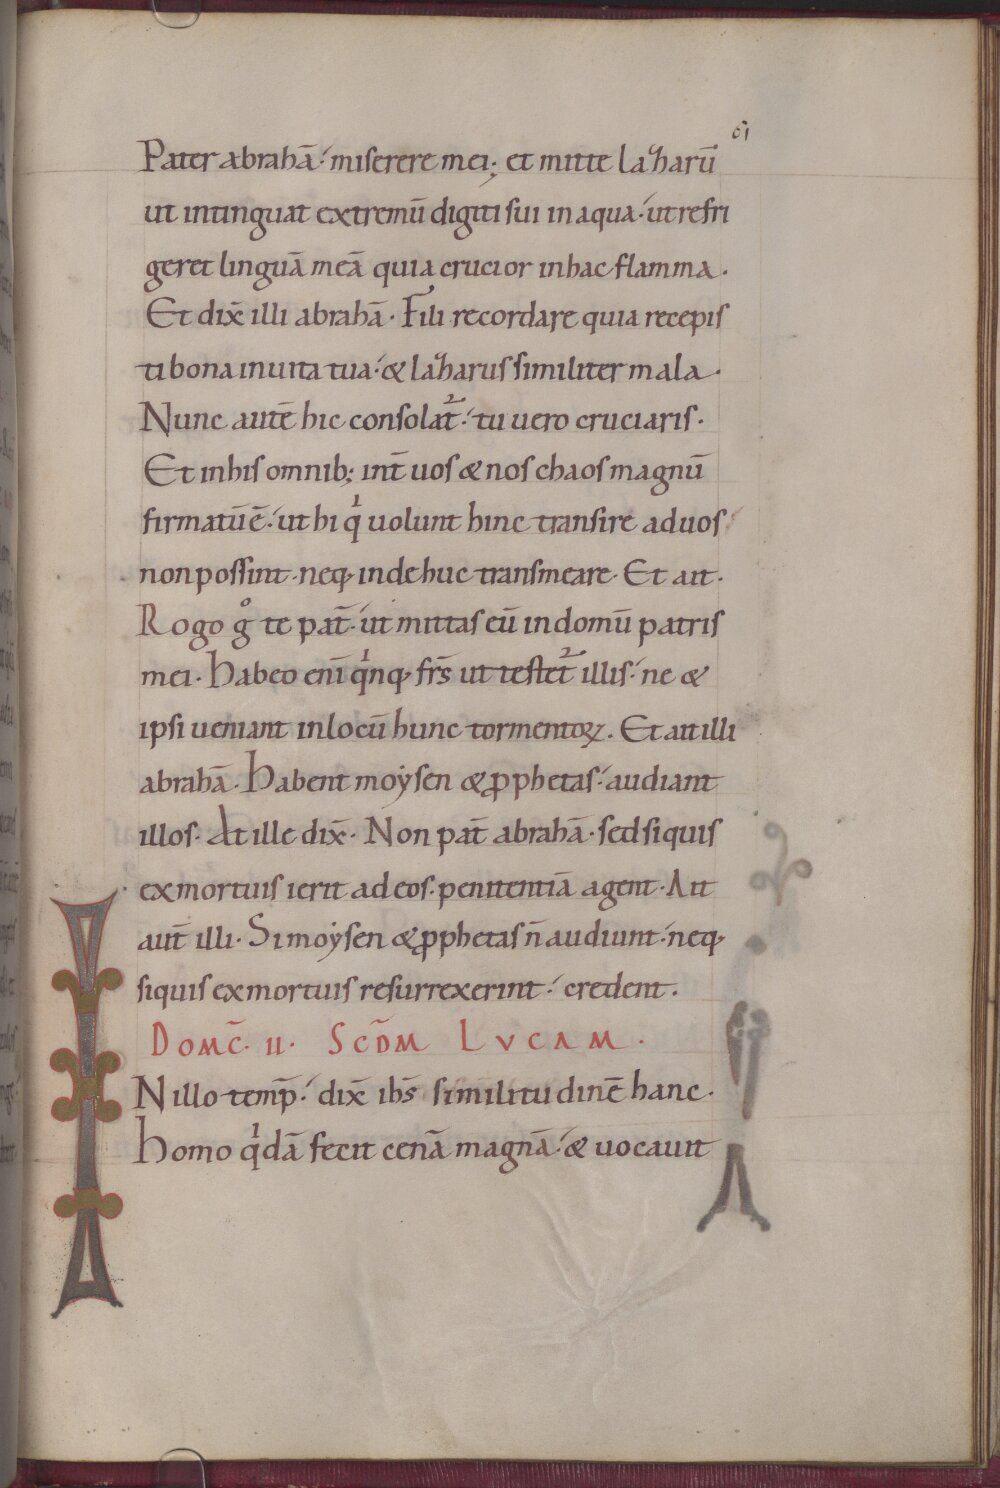 61
Pater abrahā· miserere mei; et mitte lazharū
ut intinguat extremū digiti sui in aqua· ut refri
geret linguā meā quia crucior in hac flamma·
Et dix̄ illi abrahā· Fili recordare quia recepis
ti bona in uita tua· & lazharus similiter mala·
Nunc autē hic consolat᷑· tu uero cruciaris·
Et in his omnib; int̄ uos & nos chaos magnū
firmatū ē· ut hi qͥ uolunt hinc transire ad uos
non possint· neq· inde huc transmeare· Et ait·
Rogo gͦ te pat̄· ut mittas eū in domū patris
mei· Habeo enī qͥnq· fr̄s ut testet᷑ illis· ne &
ipsi ueniant in locū hunc tormentoꝝ· Et ait illi
abrahā· Habent moẏsen & ꝓphetas· audiant
illos· At ille dix̄· Non pat̄ abrahā· sed si quis
ex mortuis ierit ad eos· penitentiā agent· Ait
aut̄ illi· Si moẏsen & ꝓphetas n̄ audiunt· neq·
si quis ex mortuis resurrexerint· credent·
Domc̄· II· Scd̄m Lvcam·
IN illo temp̄· dix̄ ih̄s similitudinē hanc·
Homo qͥdā fecit cenā magnā· & uocauit